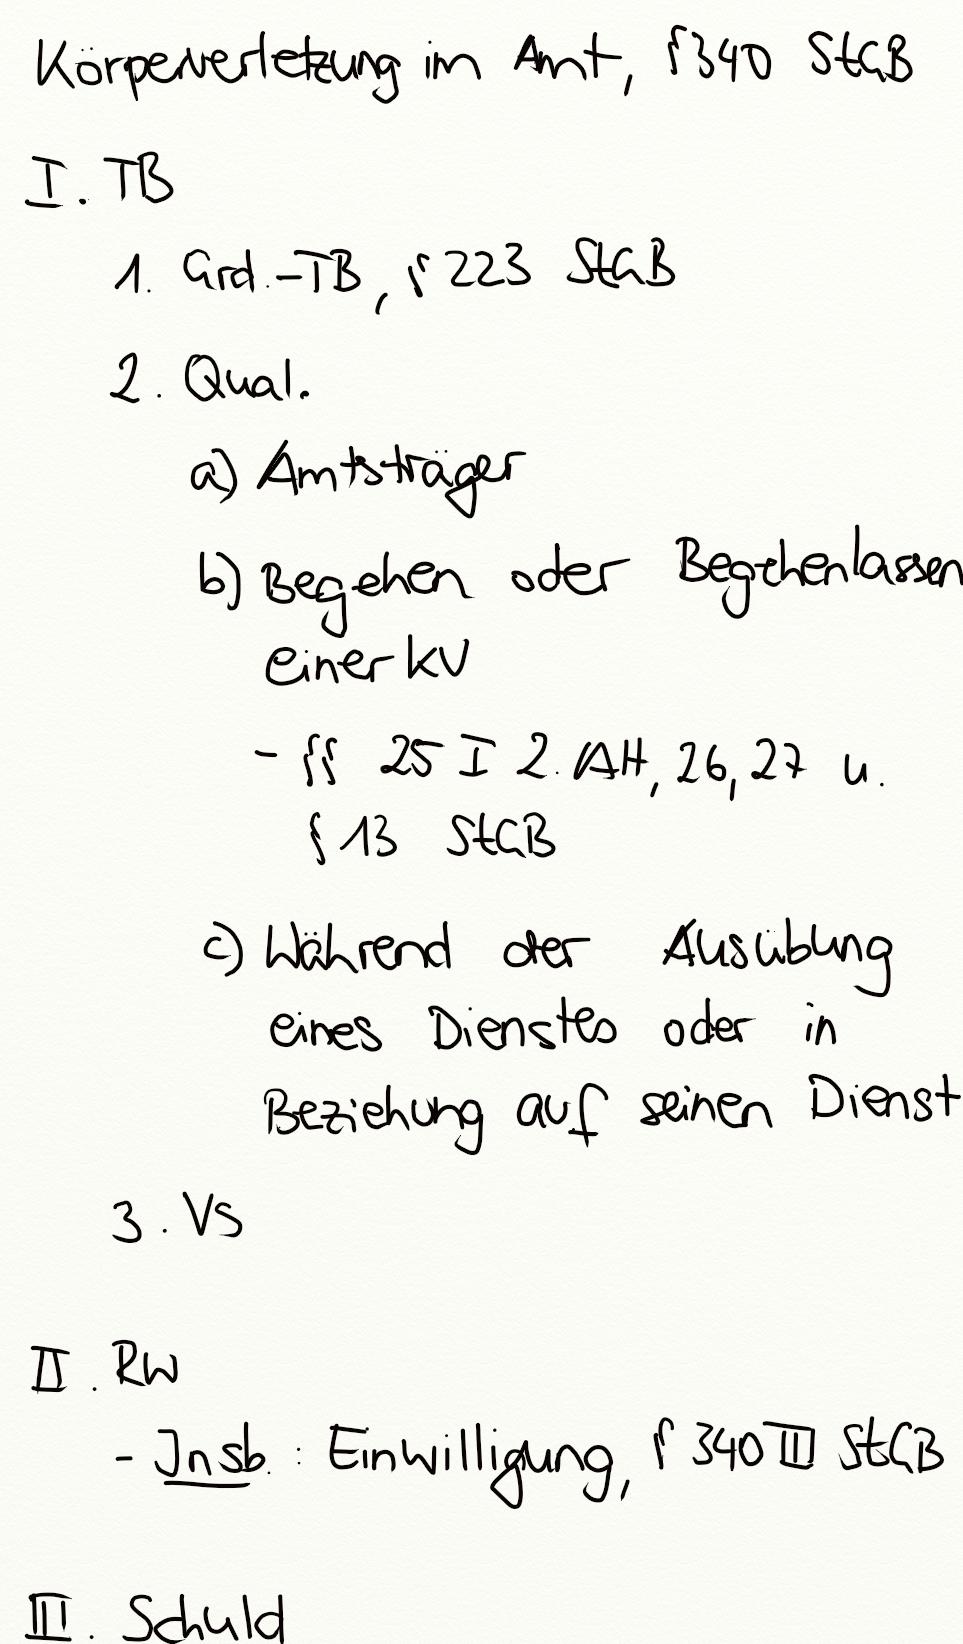 Körperverletzung im Amt, § 340 StGB
I. TB
1. Grd.-TB, § 223 StGB
2. Qual.
a) Amtsträger
b) Begehen oder Begehenlassen
einer KV
- §§ 25 I 2. Alt, 26, 27 u.
§ 13 StGB
c) Während der Ausübung
eines Dienstes oder in
Beziehung auf seinen Dienst
3. VS
II. RW
- Insb.: Einwilligung, § 340 III StGB
III. Schuld